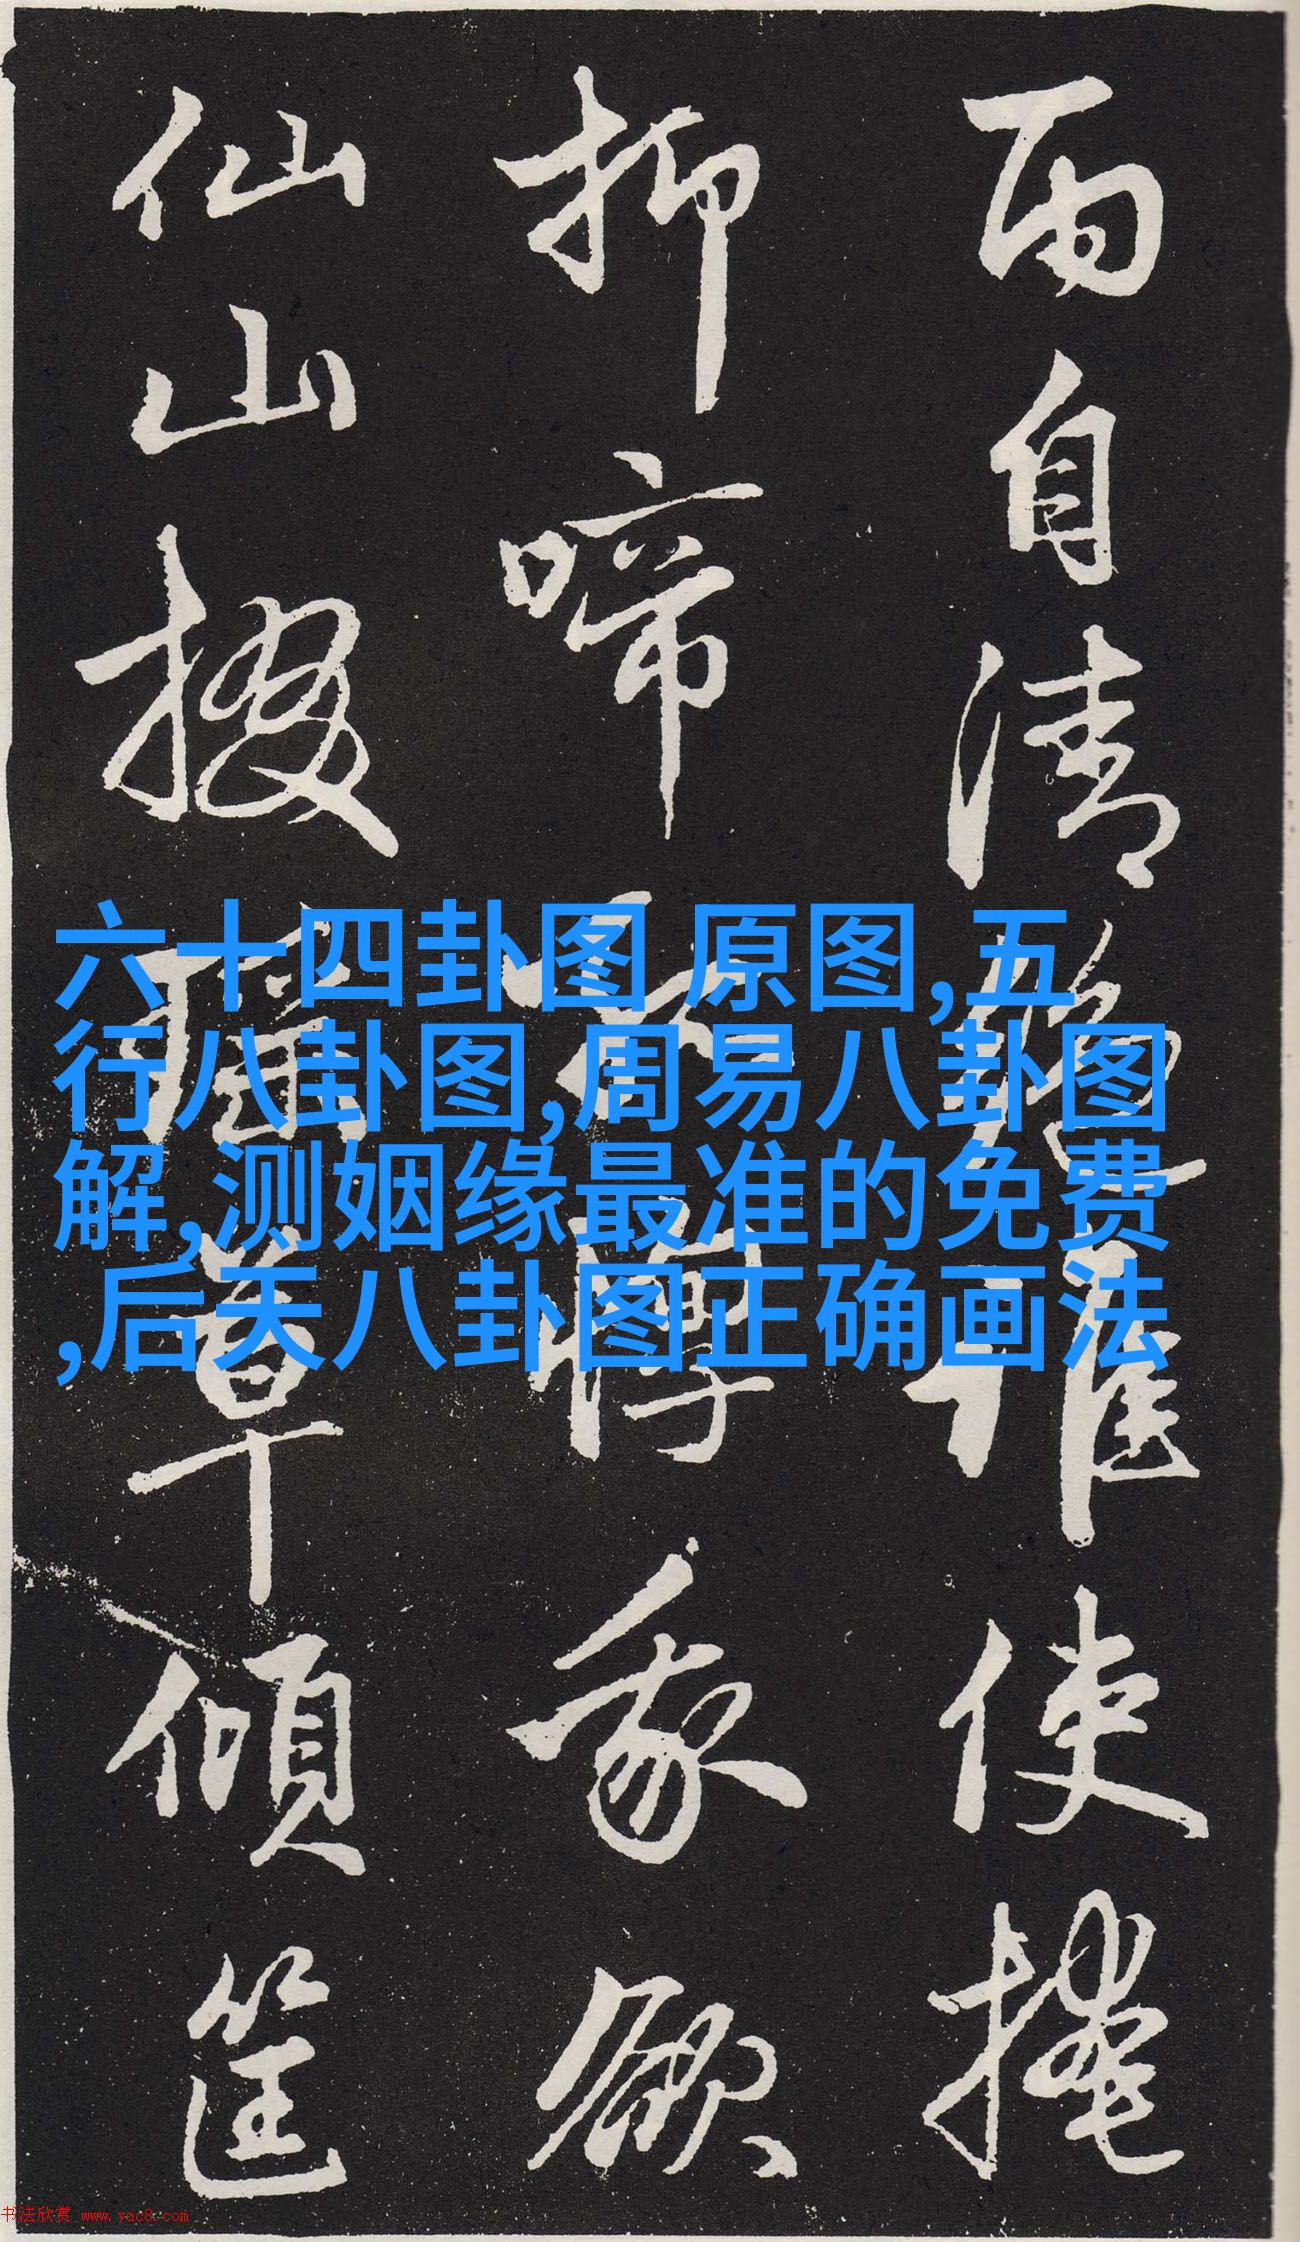 雨自清絶誰使掩
抑啼孤惸我欲
仙山掇瑤草傾筐
六十四卦图 原图,五
行八卦图,周易八卦图
解,测姻缘最准的免费
,后天八卦图正确画法
书法欣赏 www.yac8.com